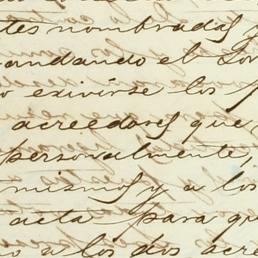 tes nombrados y
andando el
o exivirse los
acreedores que
personalmente,
mismos y a los
acta para qu
o a los dos acre